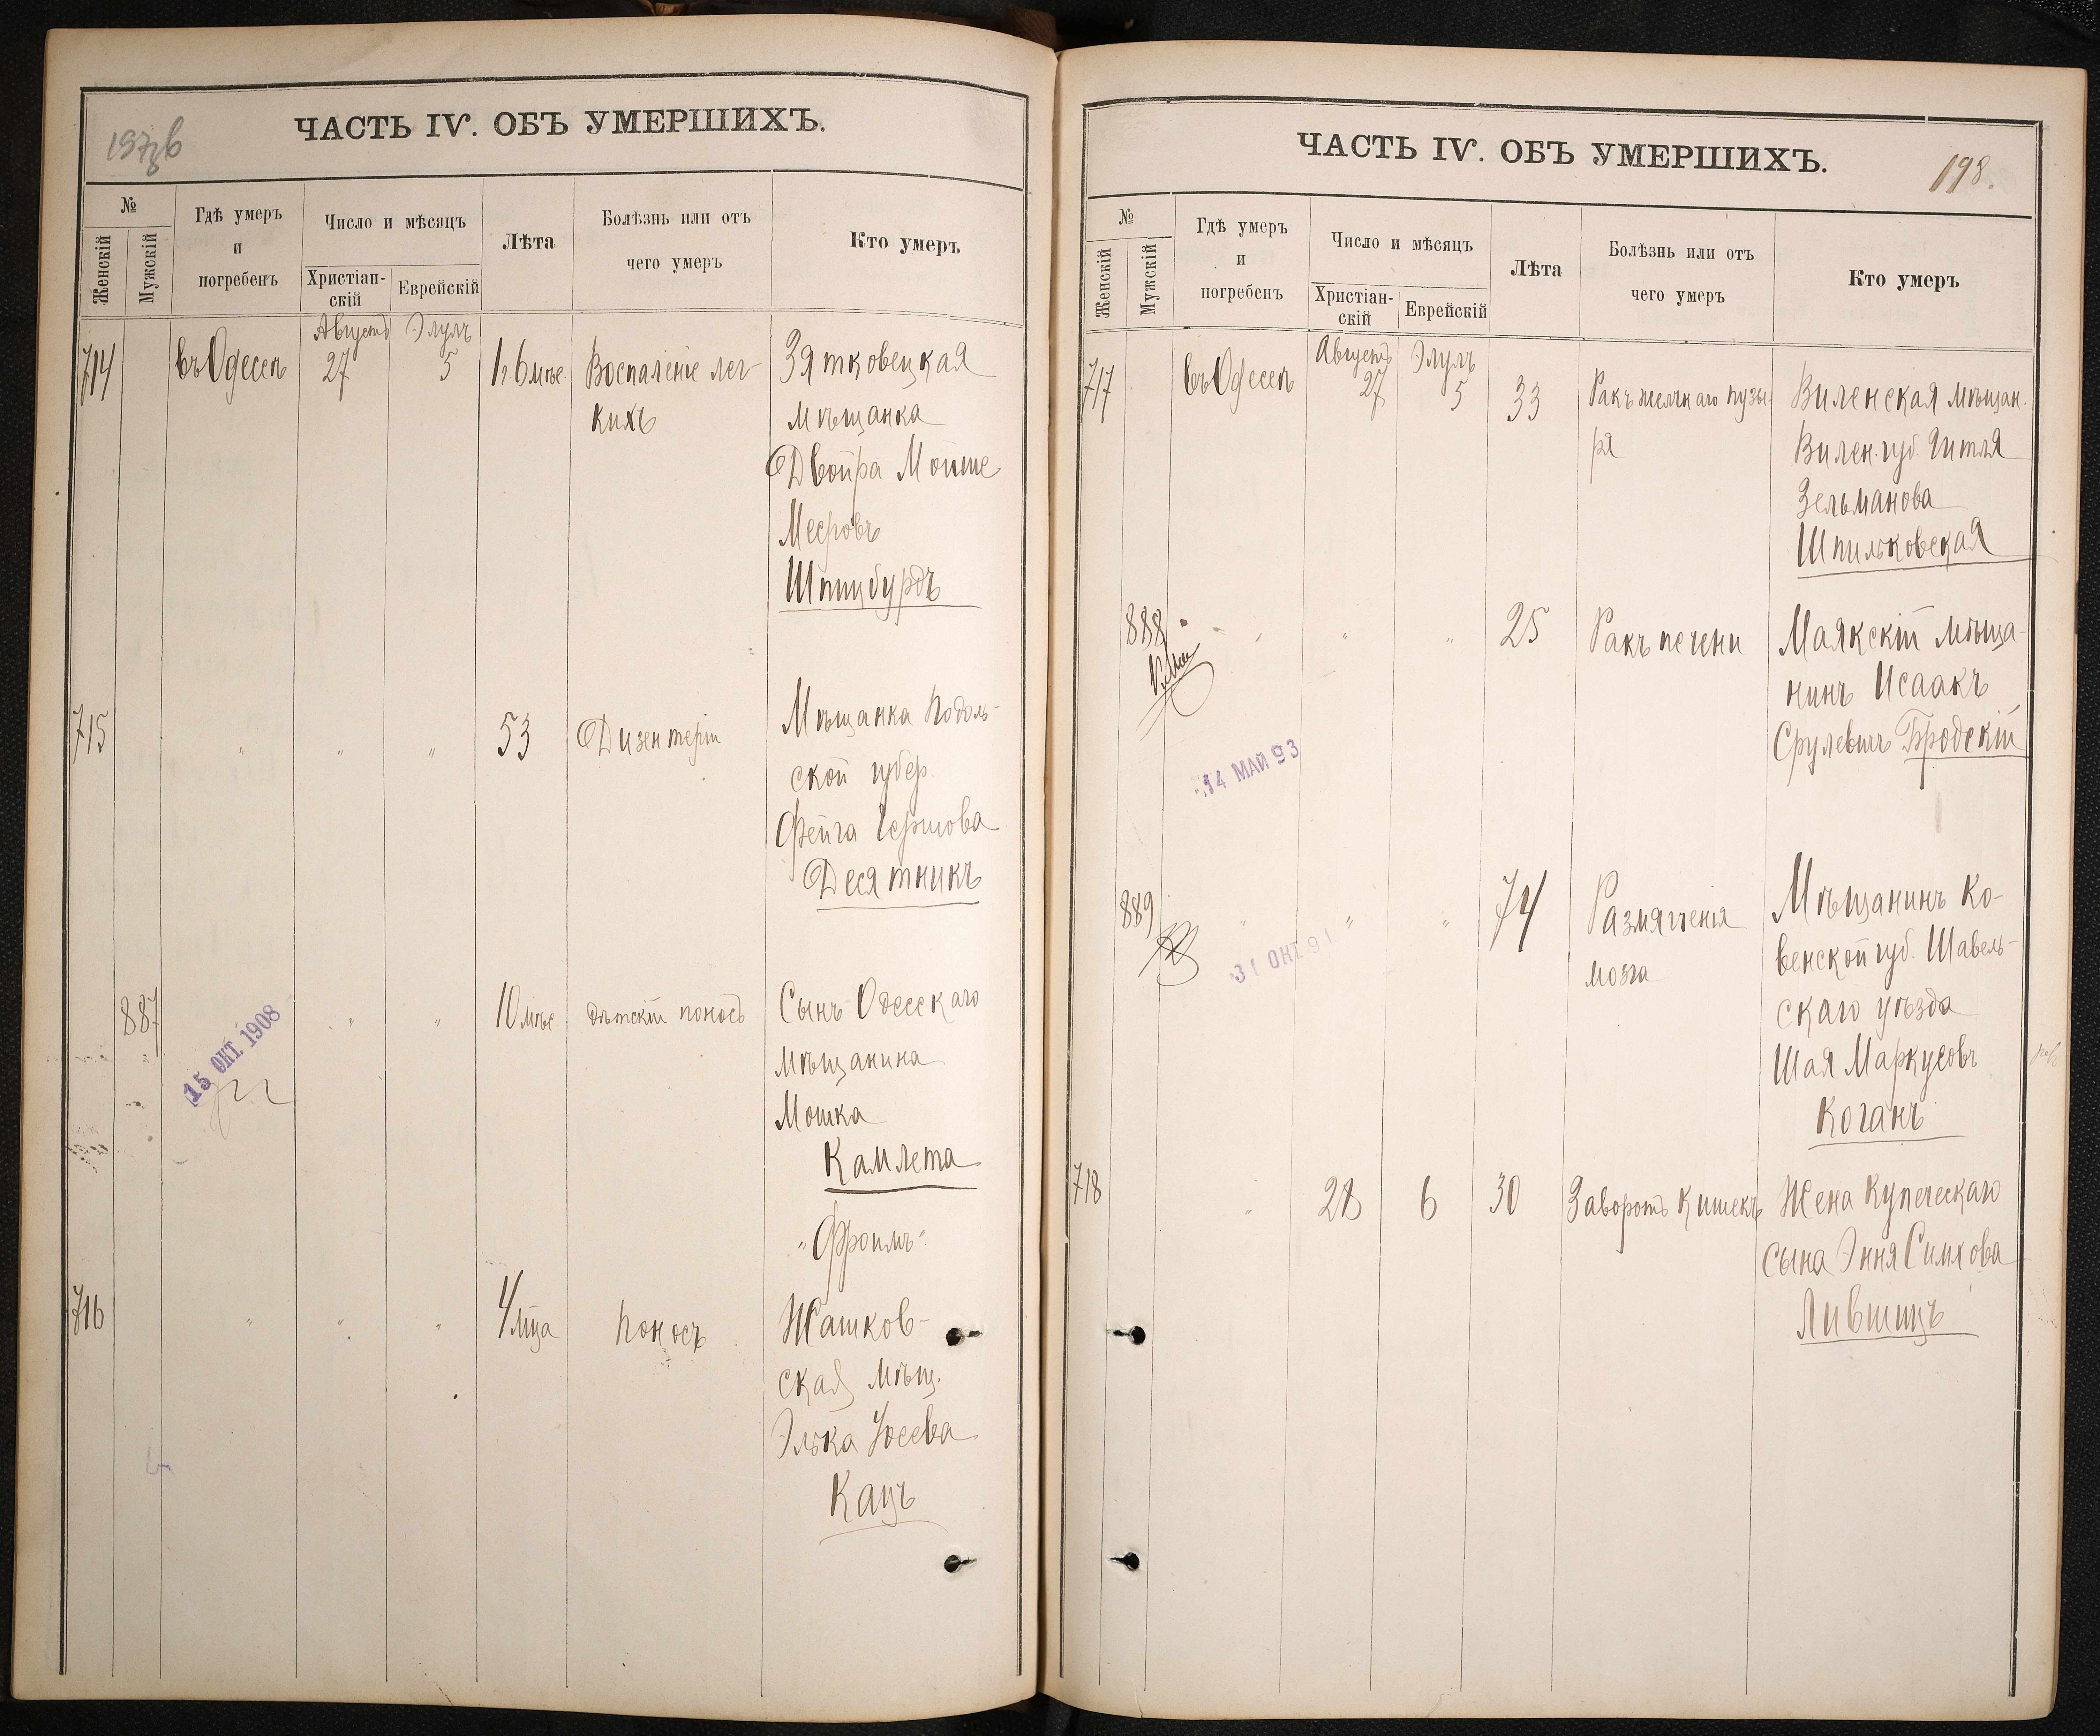 197об
ЧАСТЬ IV. ОБЪ УМЕРШИХЪ.
№
Женскій
Мужскій
Гдѣ умеръ
и
погребенъ
Число и мѣсяцъ
Христіан-
скій
Еврейскій
Лѣта
Болѣзнь или отъ
чего умеръ
Кто умеръ
Августъ Элулъ
714 въ Одессѣ 27 5 1 6 мѣс Воспаленіе лег-
кихъ
Зятковецкая
мѣщанка
Двойра Мойше
Меeровъ
Шпицбурдъ
715 " " " 53 Дизентерія
Мѣщанка Подоль-
ской губер.
Фейга Гершова
Десятникъ
887 " " 10 мѣс дѣтскій поносъ
15 ОКТ. 1908
Сынъ Одесскаго
мѣщанина
Мошка
Камлета
"Фроимъ"
716 " " " 4 мѣца Поносъ
Жашков-
ская мѣщ.
Элька Уосева
Кацъ
198.
ЧАСТЬ IV. ОБЪ УМЕРШИХЪ.
№
Женскій
Мужскій
Гдѣ умеръ
и
погребенъ
Число и мѣсяцъ
Христіан-
скій
Еврейскій
Лѣта
Болѣзнь или отъ
чего умеръ
Кто умеръ
Августъ Элулъ
717 въ Одессѣ 27 5 33 Ракъ желчнаго пузы-
ря
Виленская мѣщан.
Вилен. губ. Гитля
Зельманова
Шпильковская
888 " " " 25 Ракъ печени
14 МАЙ 93
Маякскій мѣща-
нинъ Исаакъ
Срулевичъ Бродскій
889 " " " 74 Размягченія
мозга
31 ОКТ. 91
Мѣщанинъ Ко-
венской губ. Шавель-
скаго уѣзда
Шая Маркусовъ
Коганъ
718 " 28 6 30 Заворотъ кишекъ
Жена Купеческаго
сына Эння Симхова
Лившицъ